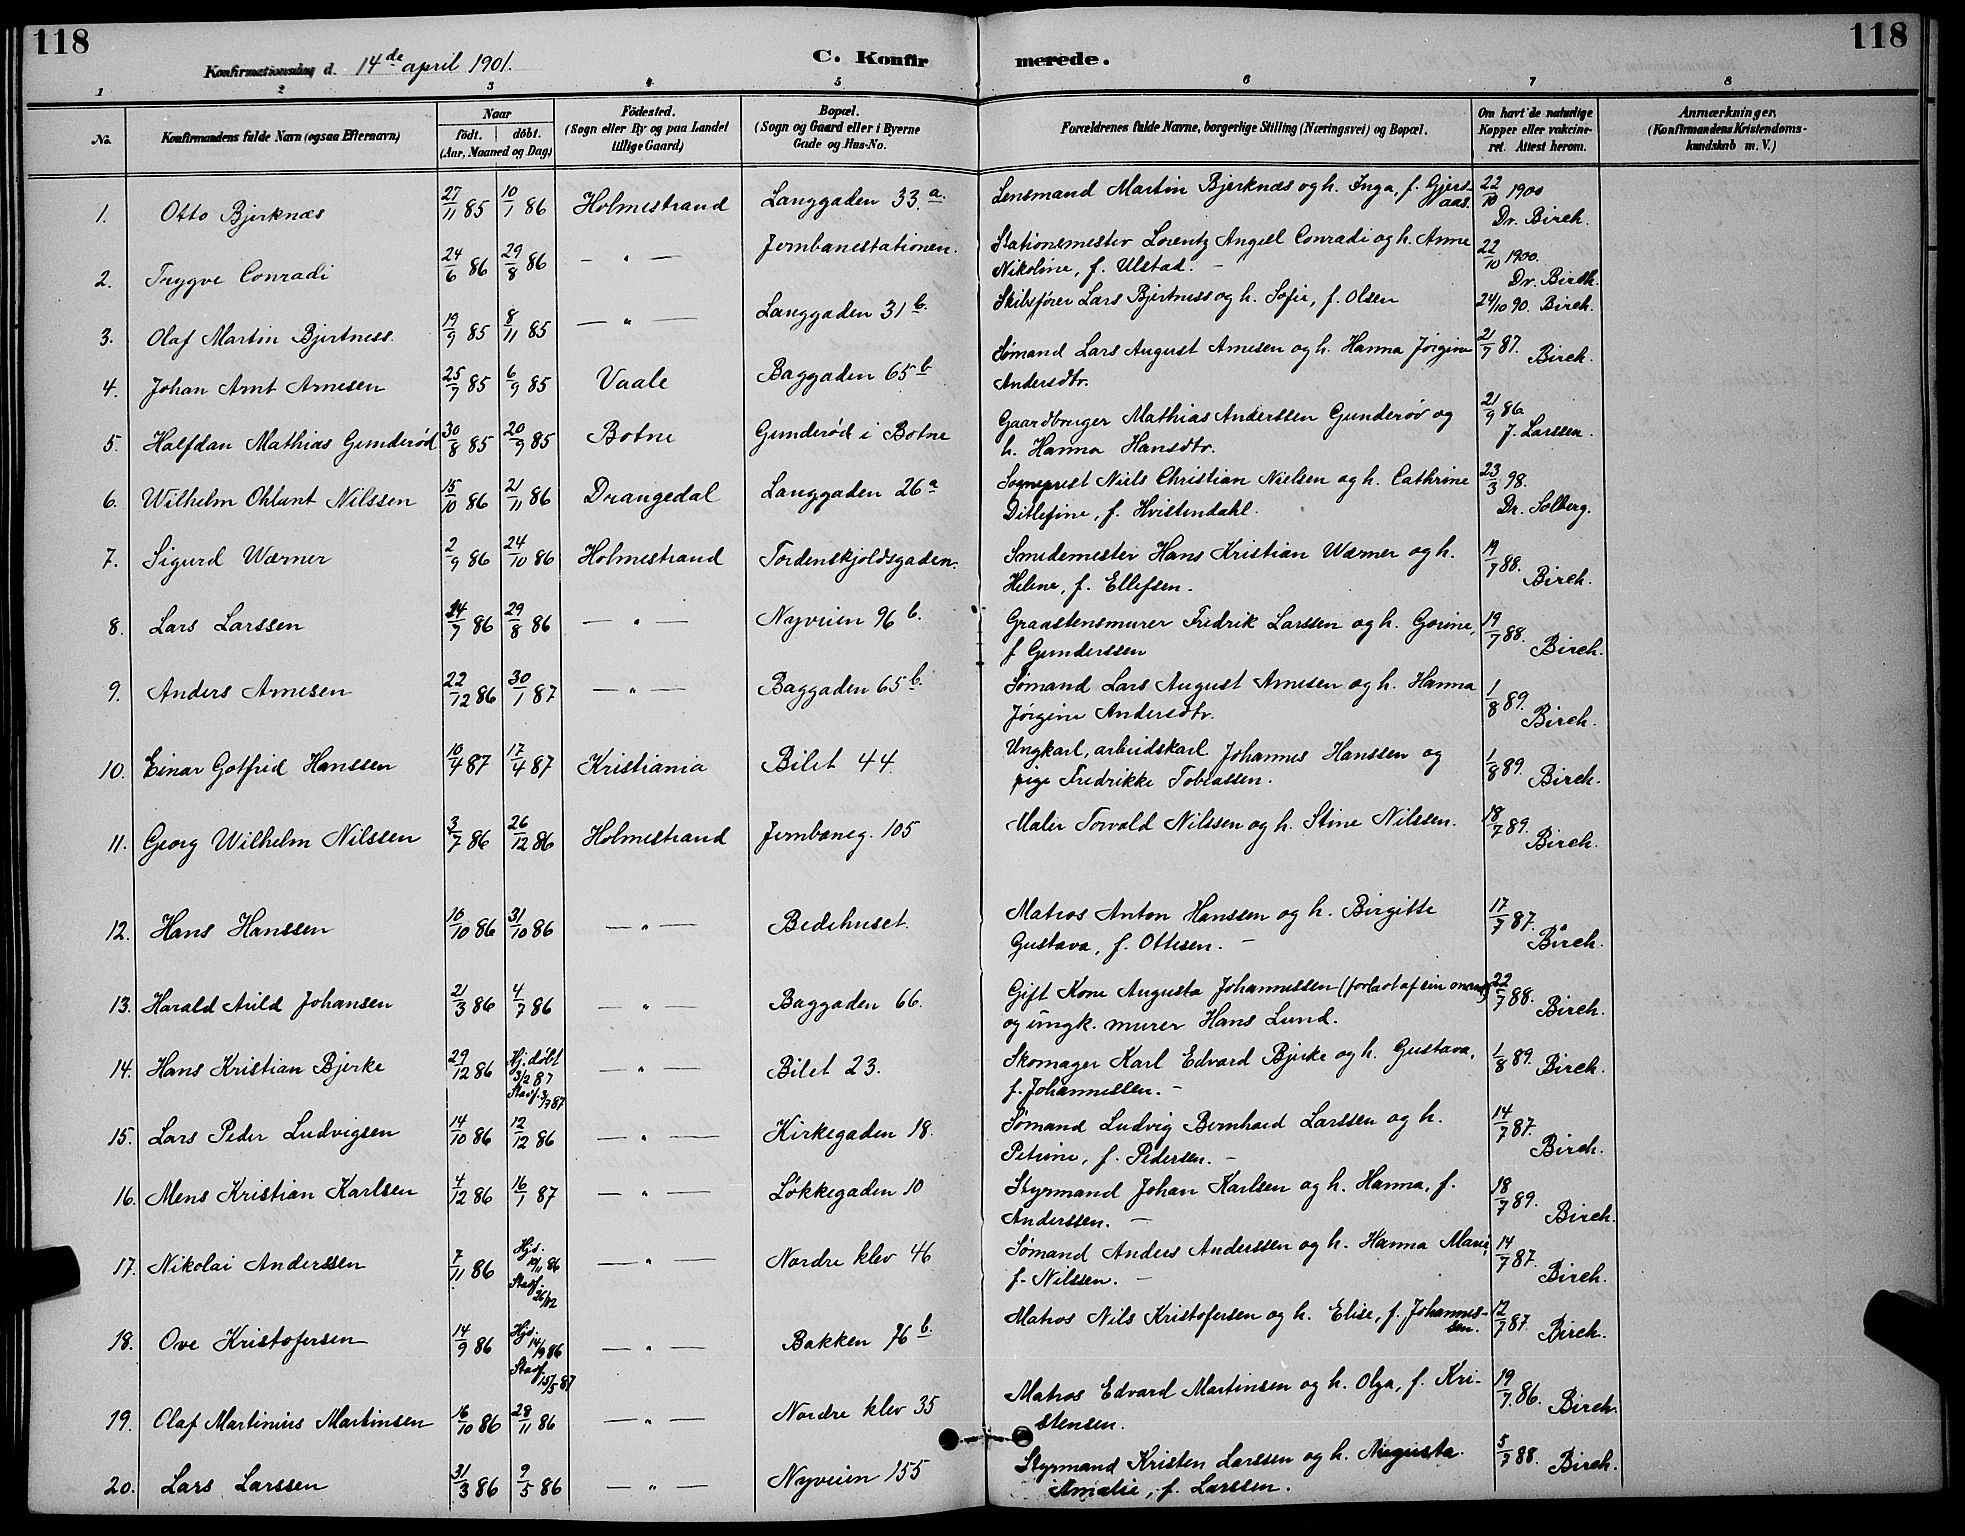 118
118
Konfirmationsdag d. 14de april 1901.
C. Konfirmerede.
1 2 3 4 5 6 7 8
No.
Konfirmandens fulde Navn (ogsaa Efternavn)
Naar
født. døbt.
(Aar, Maaned og Dag)
Fødested.
(Sogn eller By og paa Landet
tillige Gaard)
Bopæl.
(Sogn og Gaard eller i Byerne
Gade og Hus-No.
Forældrenes fulde Navne, borgerlige Stilling (Næringsvei) og Bopæl.
Om havt de naturlige
Kopper eller vakcine-
ret. Attest herom.
Anmærkninger.
(Konfirmandens Kristendoms-
kundskab m. V.)
1. Otto Bjerknæs 27/11 85 10/1 86 Holmestrand Langgaden 33.a. Lensmand Martin Bjerknæs og h. Inga, f. Gjers- 22/10 1900
aas. Dr. Birch.
2. Trygve Conradi 24/6 86 29/8 86 — " — Jernbanestationen. Stationsmester Lorentz Angell Conradi og h. Anne 22/10 1900.
Nikoline, f. Ulstad. — Dr. Birch.
3. Olaf Martin Bjertness. 19/9 85 8/11 85 — " — Langgaden 31 b. Skibsfører Lars Bjertness og h. Sofie, f. Olsen 24/10 90. Birch.
4. Johan Arnt Arnesen 25/7 85 6/9 85 Vaale Baggaden 65 b Sømand Lars August Arnesen og h. Hanna Jørgine 21/7 87. Birch.
Andersdtr.
5. Halfdan Mathias Gunderød 30/8 85 20/9 85 Botne Gunderød i Botne Gaardbruger Mathias Anderssen Gunderød og 21/9 86
h. Hanna Hansdtr. J. Larssen.
6. Wilhelm Ohlant Nilssen 15/10 86 21/11 86 Drangedal Langgaden 26 a Sogneprest Niels Christian Nielsen og h. Cathrine 23/3 98.
Ditlefine, f. Hvistendahl. Dr. Solberg.
7. Sigurd Wærner 2/9 86 24/10 86 Holmestrand Tordenskjoldsgaden. Smedemester Hans Kristian Wærner og h. 19/7 88.
Helene, f. Ellefsen. Birch.
8. Lars Larssen 24/7 86 29/8 86 — " — Nyveien 96 b. Graastensmurer Fredrik Larssen og h. Gorine, 19/7 88.
f Gunderssen Birch.
9. Anders Arnesen 22/12 86 30/1 87 — " — Baggaden 65 b. Sømand Lars August Arnesen og h. Hanna 1/8 89.
Jørgine Andersdtr. Birch.
10. Einar Gotfred Hanssen 10/4 87 17/4 87 Kristiania Bilet 44. Ungkarl, arbeidskarl Johannes Hanssen og 1/8 89.
pige Fredrikke Tobiassen. Birch.
11. Georg Wilhelm Nilssen 3/7 86 26/12 86 Holmestrand Jernbaneg. 105 Maler Torvald Nilssen og h. Stine Nilssen. 18/7 89.
Birch.
12. Hans Hanssen 10/10 86 31/10 86 — " — Bedehuset. Matros Anton Hanssen og h. Birgitte 17/7 87.
Gustava, f. Ottesen. — Birch.
13. Harald Auld Johansen 21/3 86 4/7 86 — " — Baggaden 66. Gift Kone Augusta Johannessen (forladt af sin mand) 22/7 88.
og ungk. murer Hans Lund. Birch.
14. Hans Kristian Bjerke 29/12 86 Hj. døbt 3/2 87 Stadf. 3/7 87 — " — Bilet 23. Skomager Karl Edvard Bjerke og h. Gustava, 1/8 89. Birch.
f. Johannessen. —
15. Lars Peder Ludvigsen 14/10 86 12/12 86 — " — Kirkegaden 18. Sømand Ludvig Bernhard Larssen og h. 14/7 87.
Petrine, f. Pedersen. — Birch.
16. Mens Kristian Karlsen 4/12 86 16/1 87 — " — Løkkegaden 10 Styrmand Johan Karlsen og h. Hanna, f. 18/7 89.
Anderssen. — Birch.
17. Nikolai Anderssen 7/11 86 Hjd. 14/11 86 Stadf. 26/12 — " — Nordre klev 46 Sømand Anders Anderssen og h. Hanna Marie, 14/7 87.
f. Nilssen. — Birch.
18. Ove Kristofersen 14/9 86 Hjd. 14/9 86 Stadf. 15/5 87 — " — Bakken 76 b. Matros Nils Kristofersen og h. Elise, f. Johannes- 12/7 87.
sen. Birch.
19. Olaf Martinius Martinsen 16/10 86 28/11 86 — " — Nordre klev 35 Matros Edvard Martinsen og h. Olga, f. Kri- 19/7 86. Birch.
stensen.
20. Lars Larssen 31/3 86 9/5 86 — " — Nyveien 155 Styrmand Kristen Larssen og h. Augusta 5/7 88. Birch.
Amalie, f. Larssen.